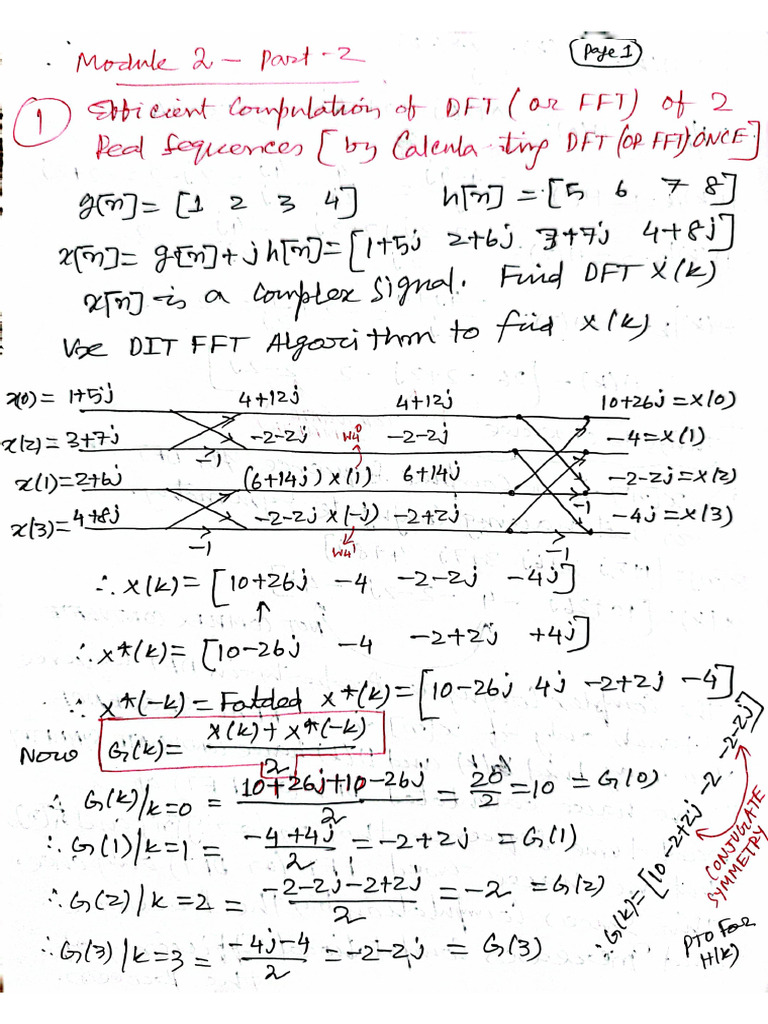 Page 1
Module 2 - Part-2
① Efficient Computation of DFT (or FFT) of 2
Real Sequences [by Calculating DFT (OR FFT) ONCE]
g[n] = [1 2 3 4] h[n] = [5 6 7 8]
x[n] = g[n] + j h[n] = [1+5j 2+6j 3+7j 4+8j]
x[n] is a complex signal. Find DFT X(k)
Use DIT FFT Algorithm to find X(k).
x(0) = 1+5j 4+12j 4+12j 10+26j = X(0)
x(2) = 3+7j -1 -2-2j W4⁰ -2-2j -4 = X(1)
x(1) = 2+6j (6+14j) x(1) 6+14j -1 -2-2j = X(2)
x(3) = 4+8j -1 -2-2j x(-j) W4¹ -2+2j -1 -4j = X(3)
∴ X(k) = [10+26j -4 -2-2j -4j]
↑
∴ X*(k) = [10-26j -4 -2+2j +4j]
∴ X*(-k) = Folded X*(k) = [10-26j 4j -2+2j -4]
Now G(k) = X(k) + X*(-k) / 2
∴ G(k)/k=0 = 10+26j+10-26j / 2 = 20/2 = 10 = G(0)
∴ G(1)/k=1 = -4+4j / 2 = -2+2j = G(1)
∴ G(2)/k=2 = -2-2j-2+2j / 2 = -2 = G(2)
∴ G(3)/k=3 = -4j-4 / 2 = -2-2j = G(3)
∴ G(k) = [10 -2+2j -2 -2-2j]
CONJUGATE
SYMMETRY
PTO For
H(k)